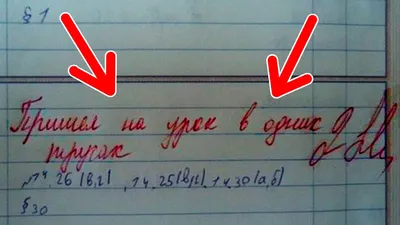 § 1
Пришел на урок в одних
трусах 2
14.25(в,г), 14.30(а,б)
§ 30